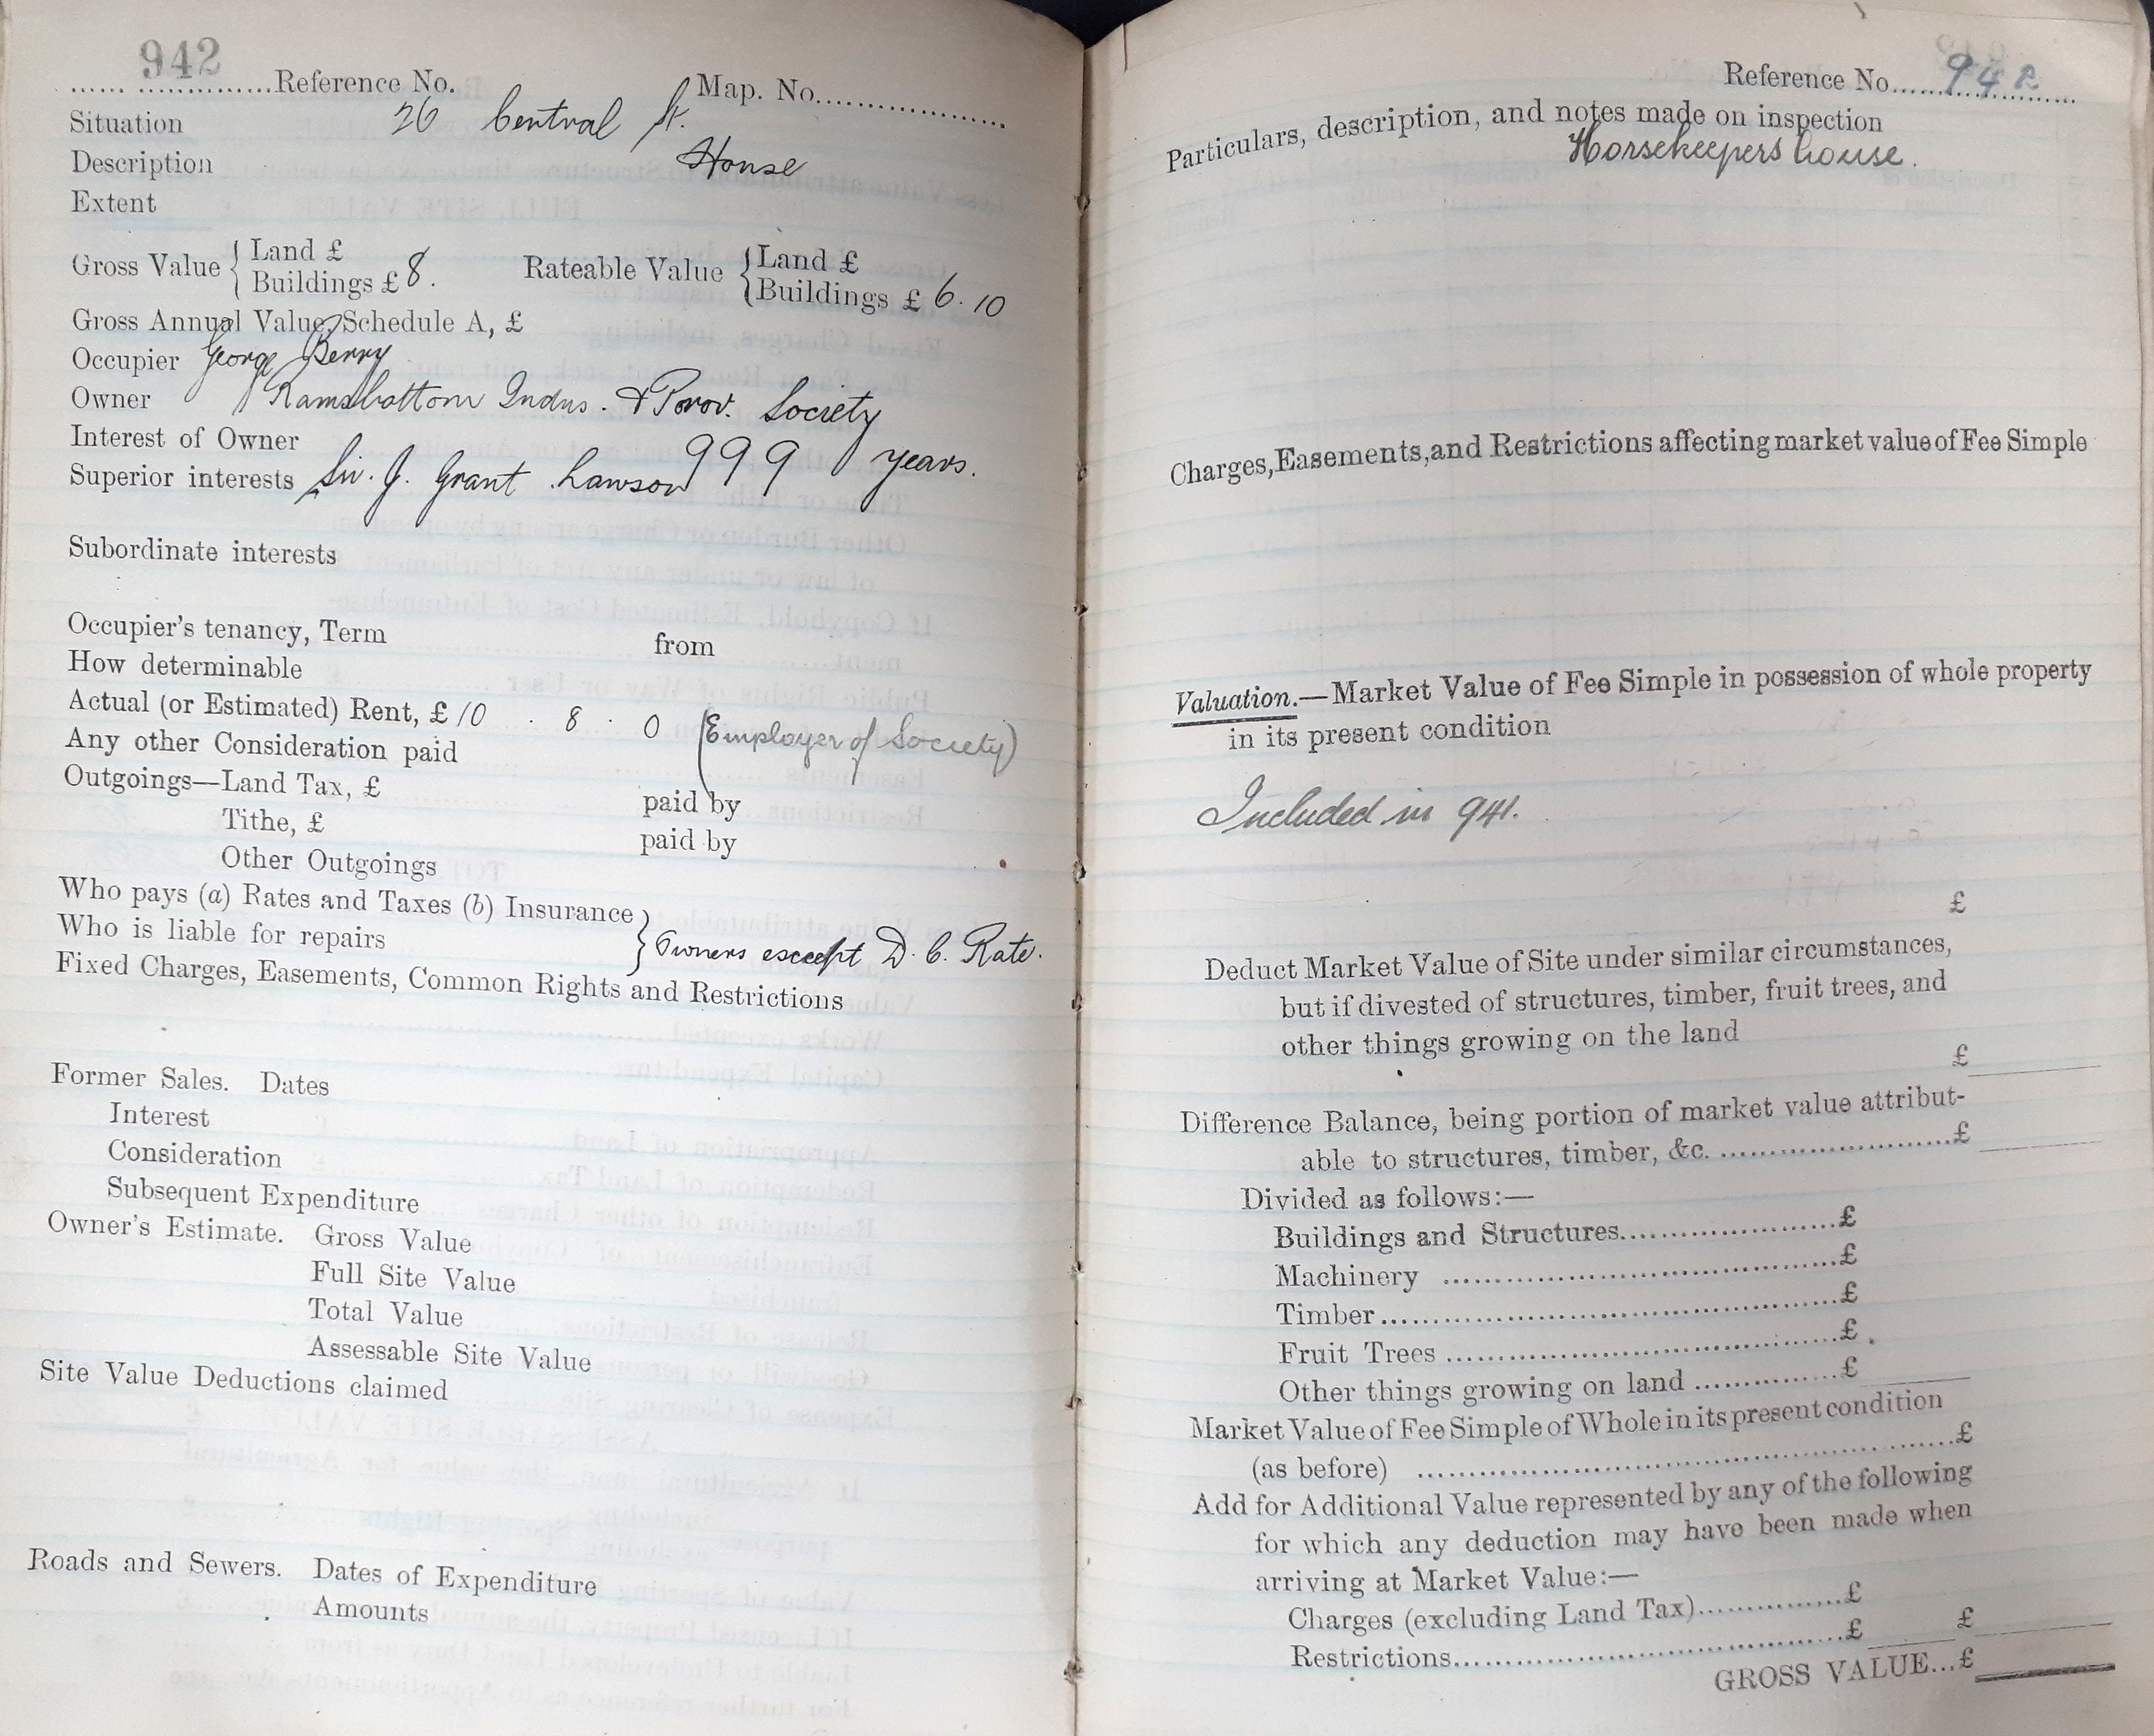 942
Reference No. Map. No.
Situation 26 Central St.
Description House
Extent
Gross Value { Land £
Buildings £ 8.
Rateable Value { Land £
Buildings £ 6. 10
Gross Annual Value, Schedule A, £
Occupier George Berry
Owner Ramsbottom Indus. & Prov. Society
Interest of Owner 999 years.
Superior interests Sir. J. Grant Lawson
Subordinate interests
Occupier's tenancy, Term from
How determinable
Actual (or Estimated) Rent, £ 10 . 8 . 0 (Employer of Society)
Any other Consideration paid
Outgoings—Land Tax, £ paid by
Tithe, £ paid by
Other Outgoings
Who pays (a) Rates and Taxes (b) Insurance }
Who is liable for repairs } Owners except D. C. Rate.
Fixed Charges, Easements, Common Rights and Restrictions
Former Sales. Dates
Interest
Consideration
Subsequent Expenditure
Owner's Estimate. Gross Value
Full Site Value
Total Value
Assessable Site Value
Site Value Deductions claimed
Roads and Sewers. Dates of Expenditure
Amounts
Reference No. 942
Particulars, description, and notes made on inspection
Horsekeepers house.
Charges, Easements, and Restrictions affecting market value of Fee Simple
Valuation.—Market Value of Fee Simple in possession of whole property
in its present condition
Included in 941.
£
Deduct Market Value of Site under similar circumstances,
but if divested of structures, timber, fruit trees, and
other things growing on the land
£
Difference Balance, being portion of market value attribut-
able to structures, timber, &c. £
Divided as follows:—
Buildings and Structures £
Machinery £
Timber £
Fruit Trees £
Other things growing on land £
Market Value of Fee Simple of Whole in its present condition
(as before) £
Add for Additional Value represented by any of the following
for which any deduction may have been made when
arriving at Market Value:—
Charges (excluding Land Tax) £
Restrictions £ £
GROSS VALUE...£